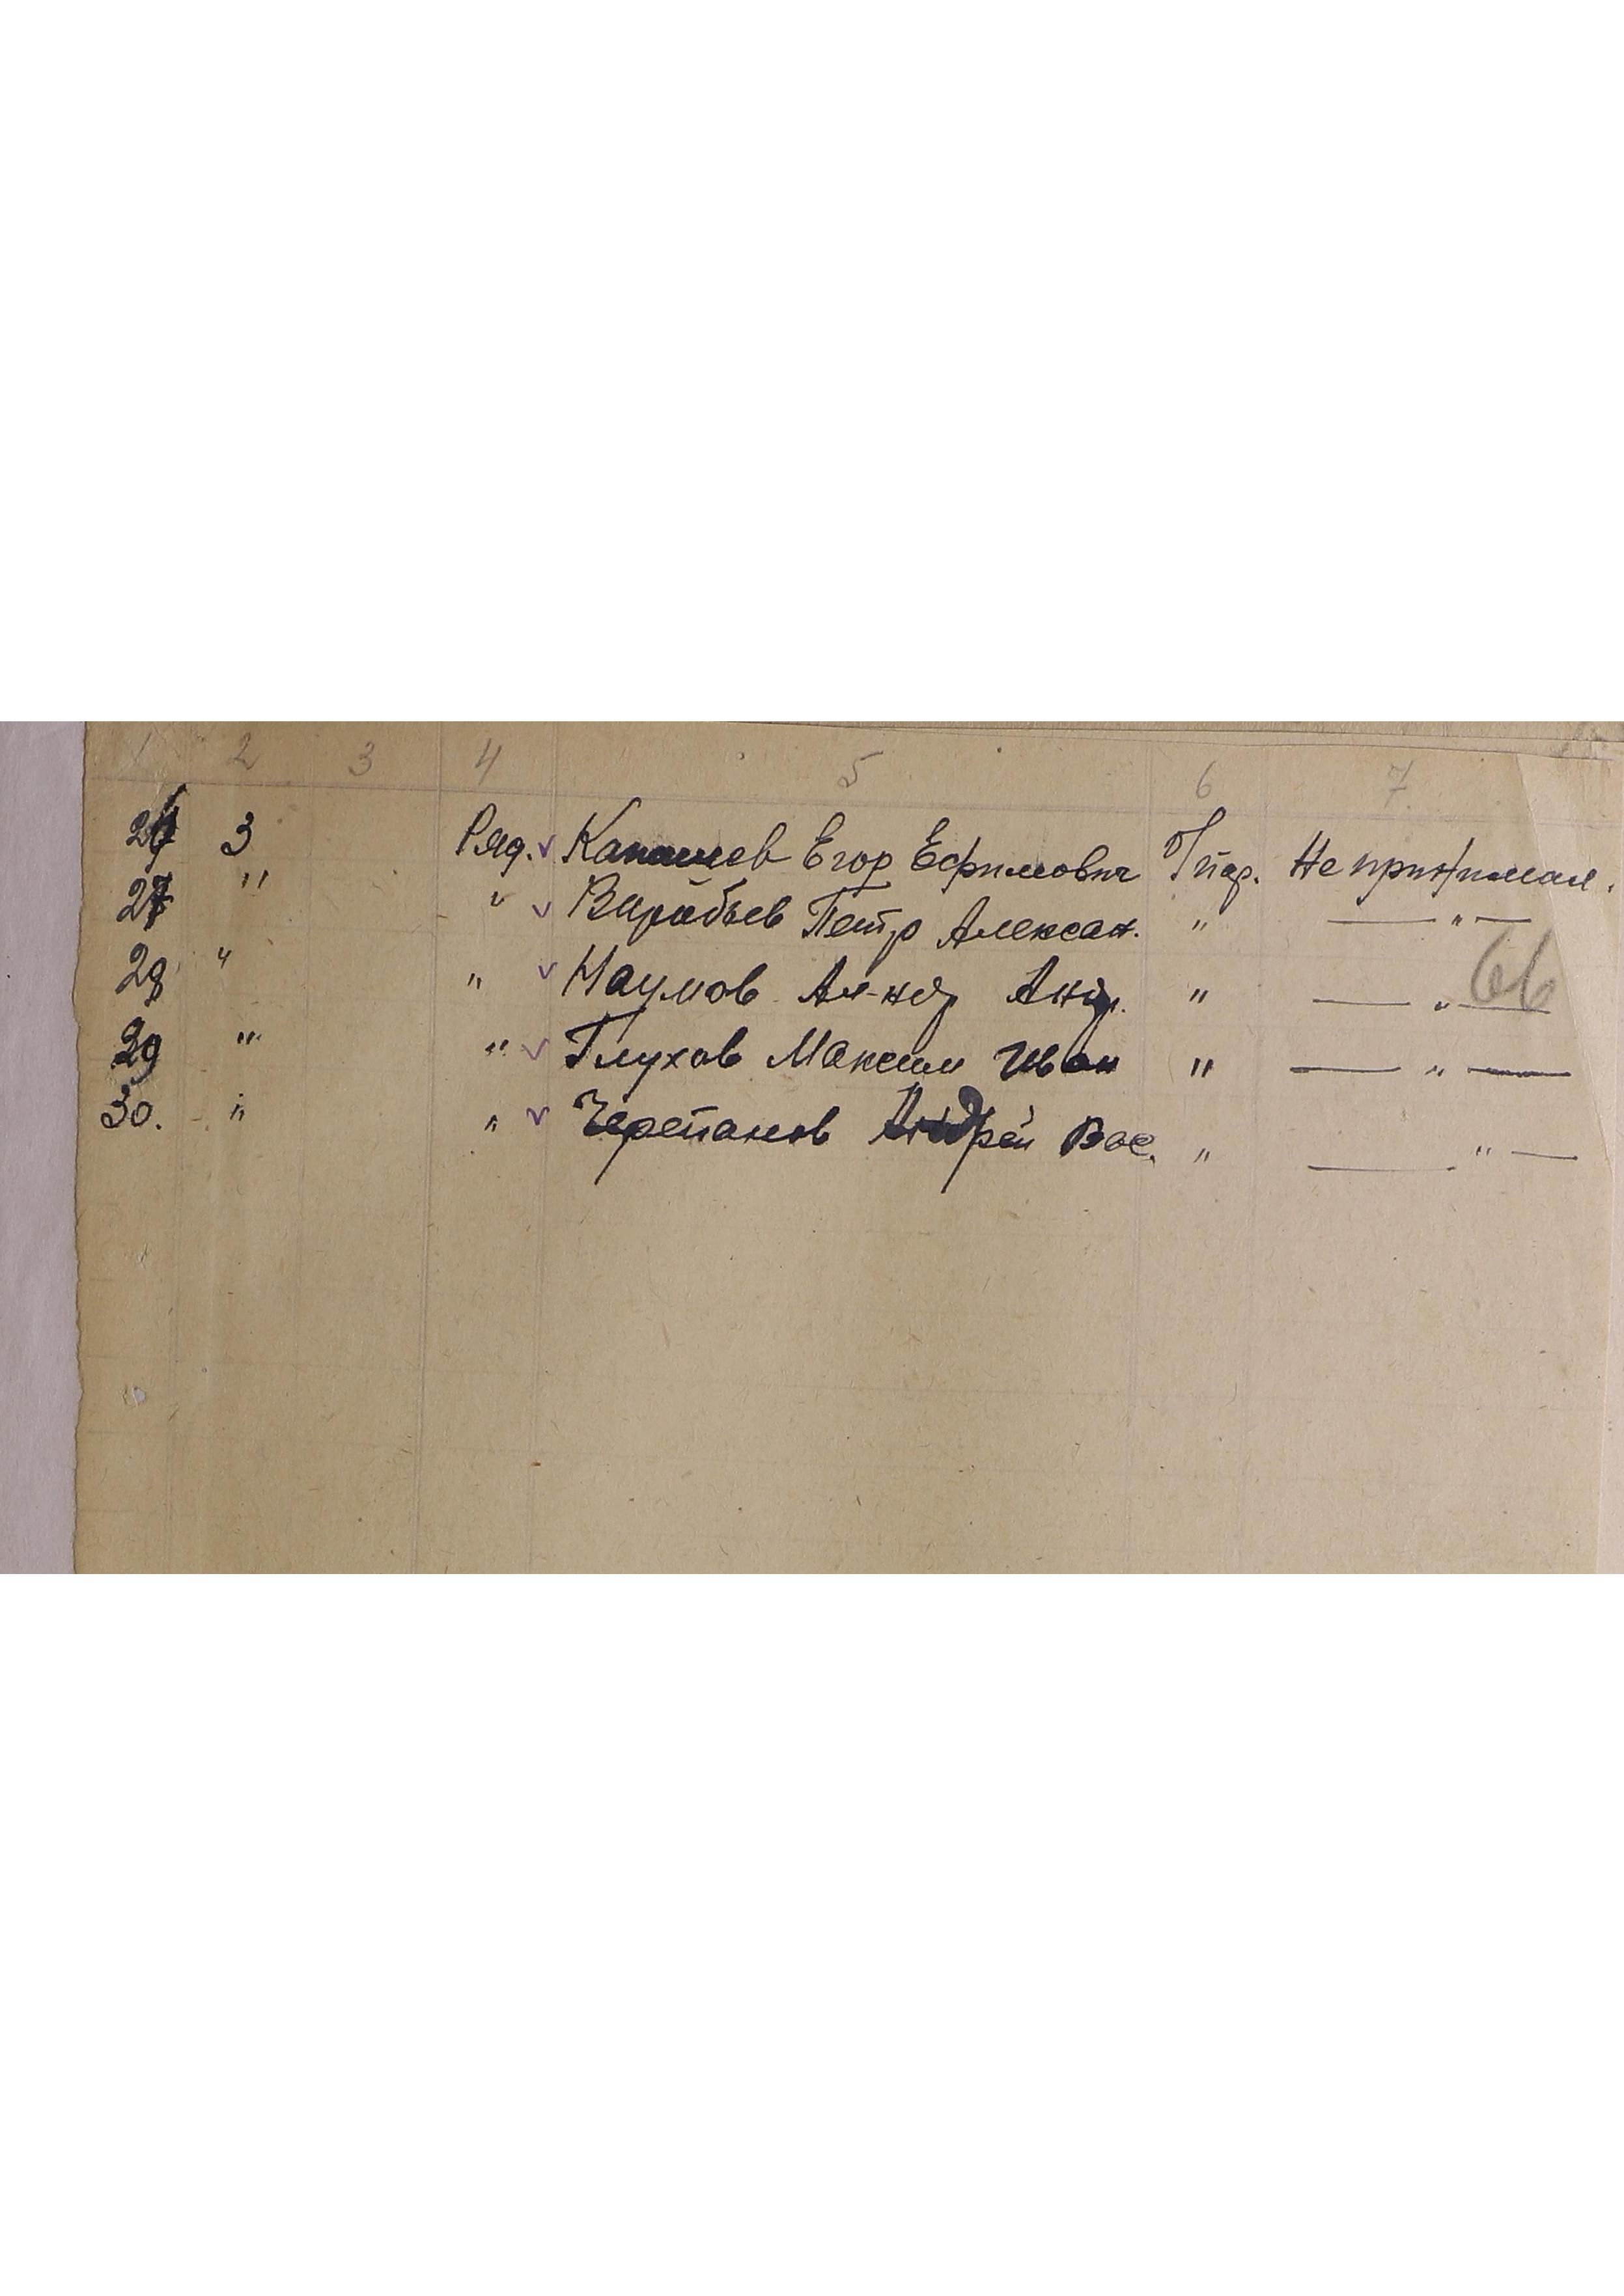 1 2 3 4 5 6 7
26 3 Ряд. Егор Ефимович Не принимал.
27 " " Варабьев Петр Алексан. " — " —
28 " " Наумов Ал-нdр Андр. " — " — 66
29 " " Глухов Максим Иван " — " —
30. " " Черепанов Андрей Вас. " — " —